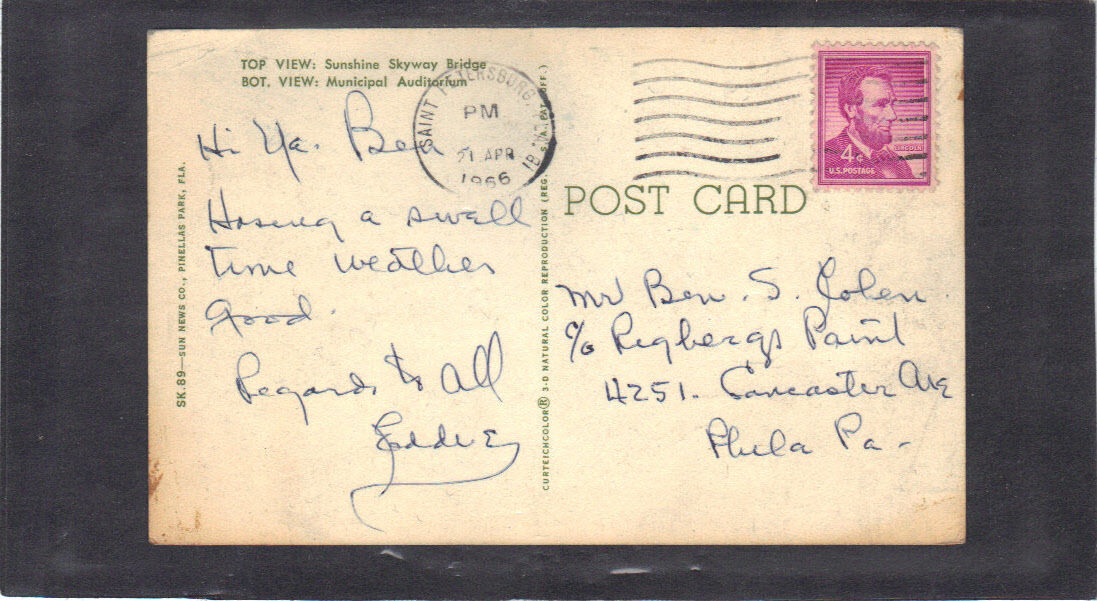 TOP VIEW: Sunshine Skyway Bridge
BOT. VIEW: Municipal Auditorium
SAINT PETERSBURG,
PM
21 APR
1966
1B
Hi Ya. Ben
Having a swell
time weather
good.
Regards to All
Eddie
SK.89—SUN NEWS CO., PINELLAS PARK, FLA.
CURTEICHCOLOR® 3-D NATURAL COLOR REPRODUCTION (REG. U.S.A. PAT. OFF.)
POST CARD
4¢
U.S. POSTAGE
LINCOLN
Mr Ben. S. Colen
c/o Regbergs Paint
4251. Lancaster Ave
Phila Pa-